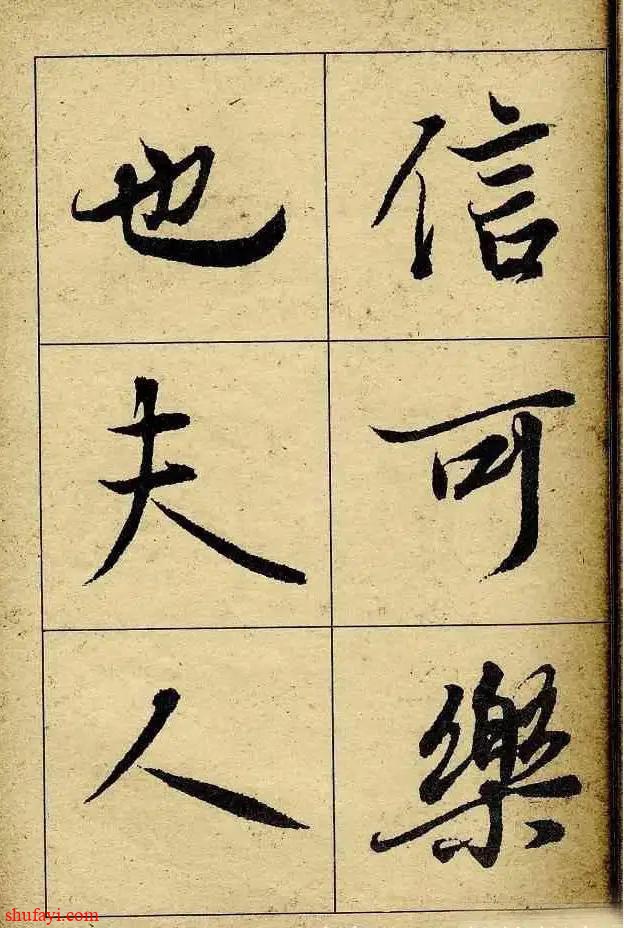 信可樂
也夫人
shufayi.com